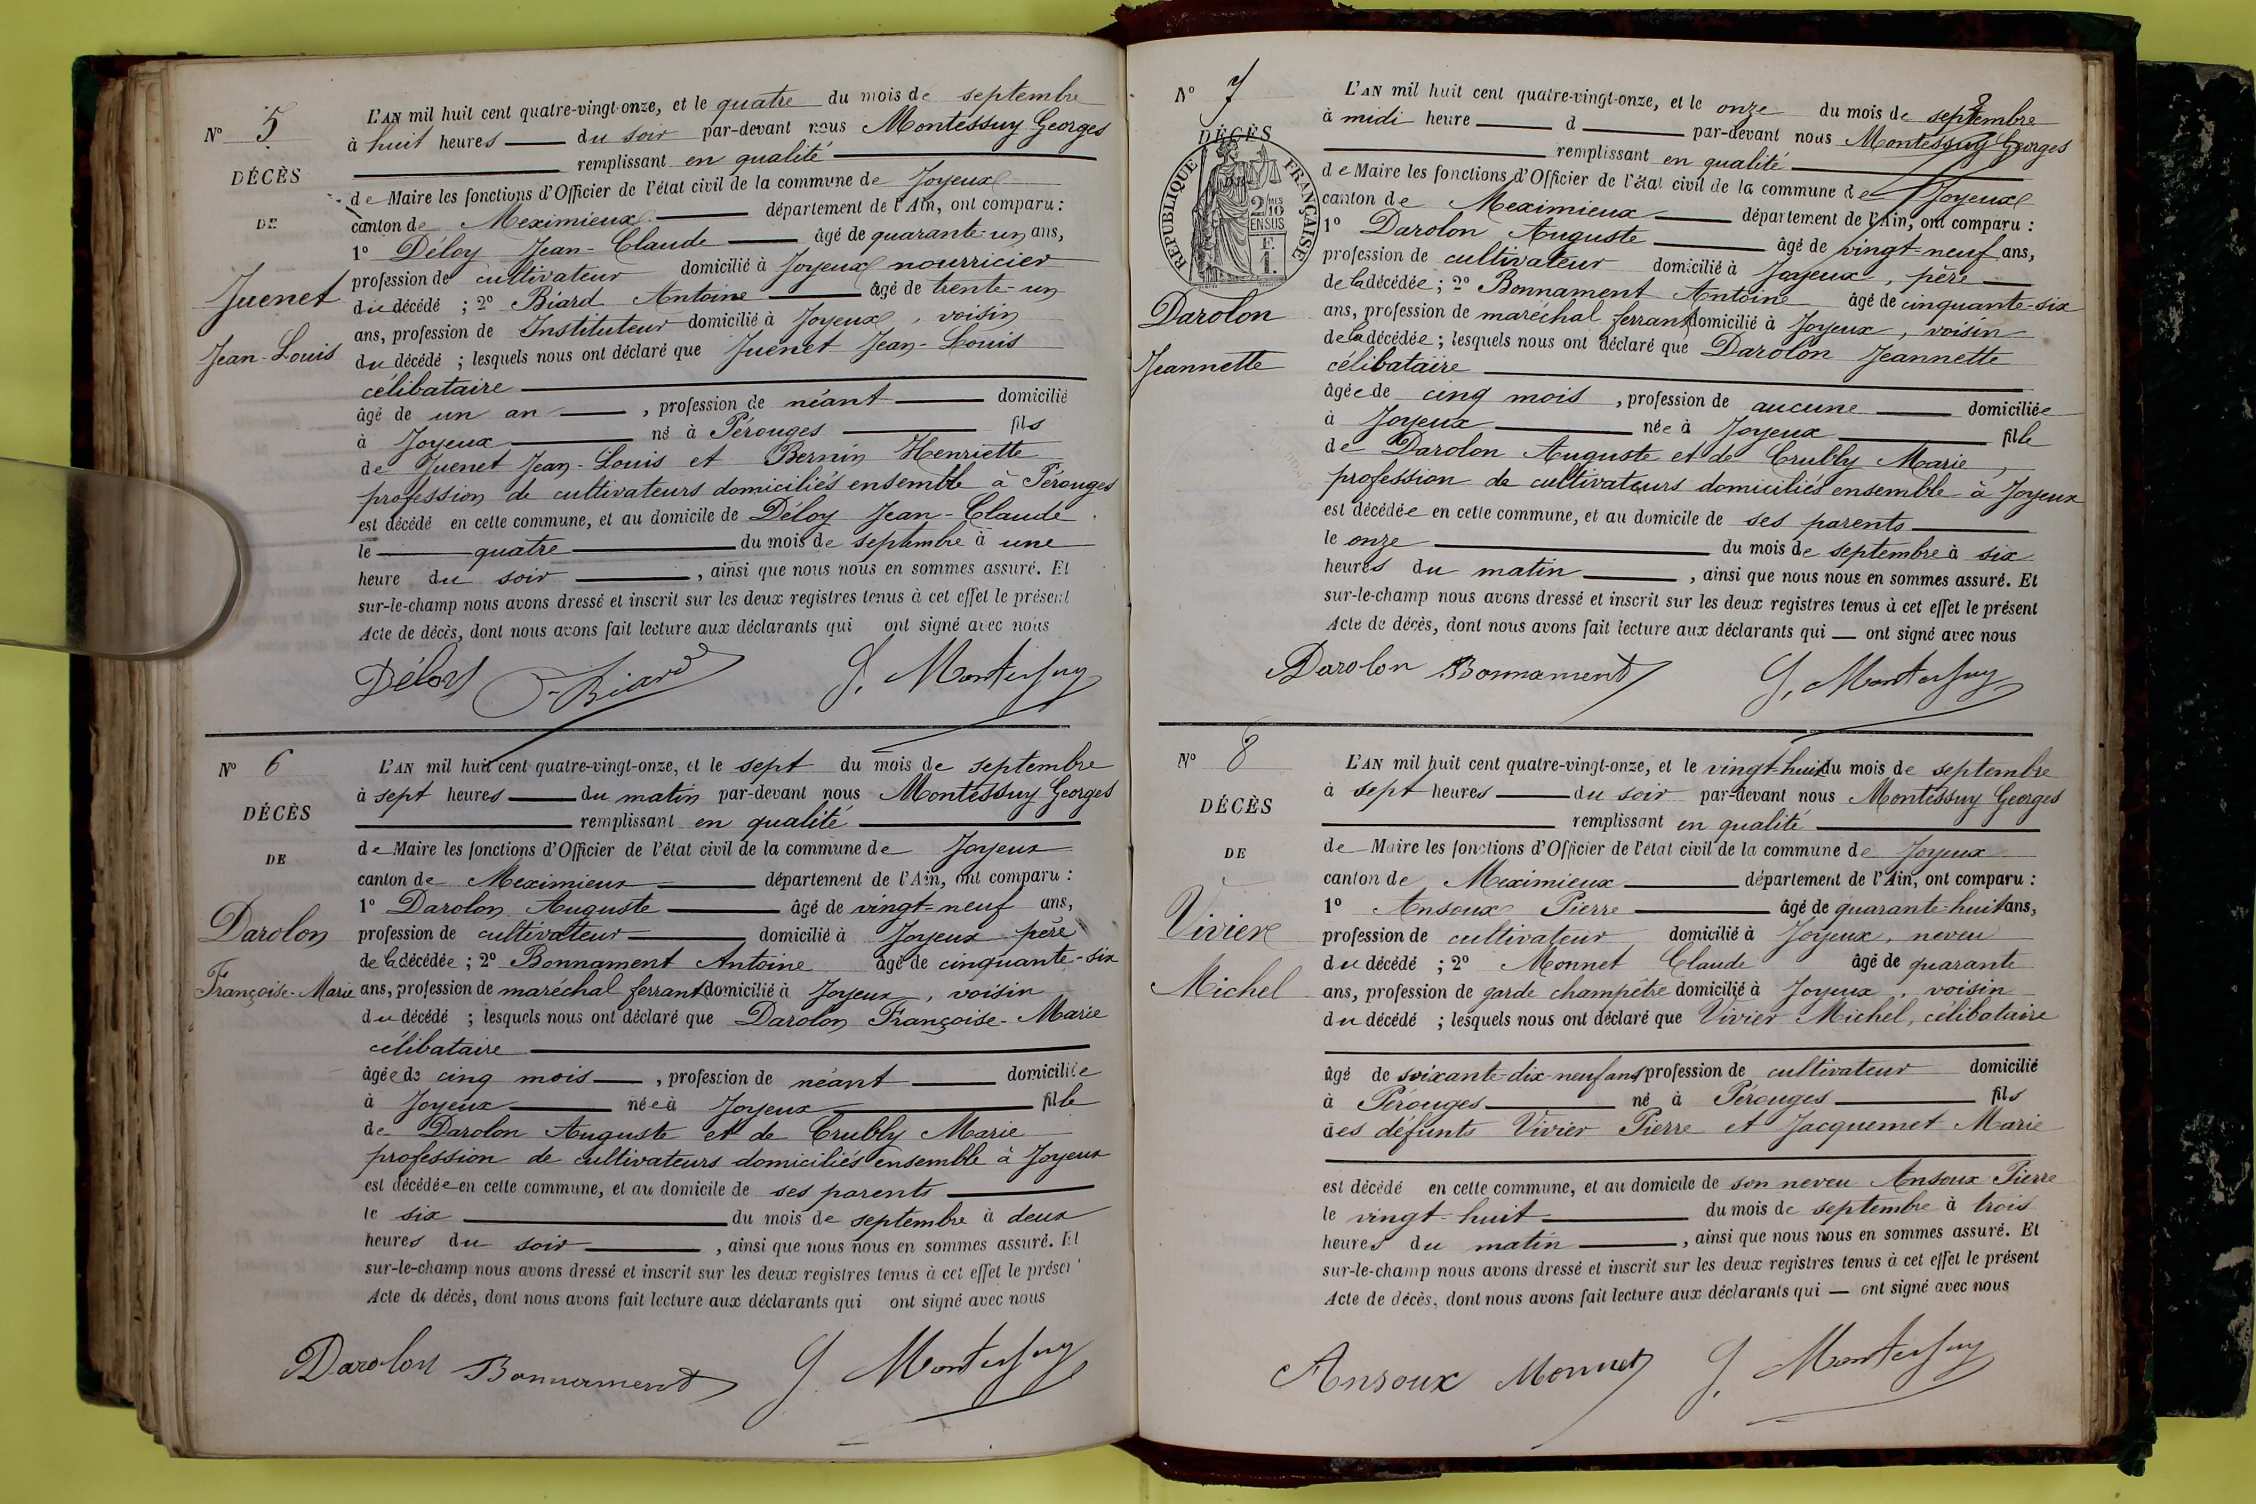 N° 5
DÉCÈS
DE
Juenet
Jean-Louis
L'AN mil huit cent quatre-vingt-onze, et le quatre du mois de septembre
à huit heures du soir par-devant nous Montessuy Georges
remplissant en qualité
de Maire les fonctions d'Officier de l'état civil de la commune de Joyeux
canton de Meximieux département de l'Ain, ont comparu :
1° Déloy Jean-Claude âgé de quarante-un ans,
profession de cultivateur domicilié à Joyeux nourricier
du décédé ; 2° Biard Antoine âgé de trente-un
ans, profession de Instituteur domicilié à Joyeux, voisin
du décédé ; lesquels nous ont déclaré que Juenet Jean-Louis
célibataire
âgé de un an , profession de néant domicilié
à Joyeux né à Pérouges fils
de Juenet Jean-Louis et Bernin Henriette
profession de cultivateurs domiciliés ensemble à Pérouges
est décédé en cette commune, et au domicile de Déloy Jean-Claude
le quatre du mois de septembre à une
heure du soir , ainsi que nous nous en sommes assuré. Et
sur-le-champ nous avons dressé et inscrit sur les deux registres tenus à cet effet le présent
Acte de décès, dont nous avons fait lecture aux déclarants qui ont signé avec nous
Déloy Biard G. Montessuy
N° 6
DÉCÈS
DE
Darolon
Françoise-Marie
L'AN mil huit cent quatre-vingt-onze, et le sept du mois de septembre
à sept heures du matin par-devant nous Montessuy Georges
remplissant en qualité
de Maire les fonctions d'Officier de l'état civil de la commune de Joyeux
canton de Meximieux département de l'Ain, ont comparu :
1° Darolon Auguste âgé de vingt-neuf ans,
profession de cultivateur domicilié à Joyeux père
de la décédée ; 2° Bonnament Antoine âgé de cinquante-six
ans, profession de maréchal ferrant domicilié à Joyeux, voisin
du décédé ; lesquels nous ont déclaré que Darolon Françoise-Marie
célibataire
âgée de cinq mois , profession de néant domiciliée
à Joyeux née à Joyeux fille
de Darolon Auguste et de Crubly Marie
profession de cultivateurs domiciliés ensemble à Joyeux
est décédée en cette commune, et au domicile de ses parents
le six du mois de septembre à deux
heures du soir , ainsi que nous nous en sommes assuré. Et
sur-le-champ nous avons dressé et inscrit sur les deux registres tenus à cet effet le présent
Acte de décès, dont nous avons fait lecture aux déclarants qui ont signé avec nous
Darolon Bonnament G. Montessuy
N° 7
DÉCÈS
RÉPUBLIQUE FRANÇAISE
2 MES 10
EN SUS
F.
1.
Darolon
Jeannette
L'AN mil huit cent quatre-vingt-onze, et le onze du mois de septembre
à midi heure d par-devant nous Montessuy Georges
remplissant en qualité
de Maire les fonctions d'Officier de l'état civil de la commune de Joyeux
canton de Meximieux département de l'Ain, ont comparu :
1° Darolon Auguste âgé de vingt-neuf ans,
profession de cultivateur domicilié à Joyeux, père
de la décédée ; 2° Bonnament Antoine âgé de cinquante-six
ans, profession de maréchal ferrant domicilié à Joyeux, voisin
de la décédée ; lesquels nous ont déclaré que Darolon Jeannette
célibataire
âgée de cinq mois , profession de aucune domiciliée
à Joyeux née à Joyeux fille
de Darolon Auguste et de Crubly Marie,
profession de cultivateurs domiciliés ensemble à Joyeux
est décédée en cette commune, et au domicile de ses parents
le onze du mois de septembre à six
heures du matin , ainsi que nous nous en sommes assuré. Et
sur-le-champ nous avons dressé et inscrit sur les deux registres tenus à cet effet le présent
Acte de décès, dont nous avons fait lecture aux déclarants qui ont signé avec nous
Darolon Bonnament G. Montessuy
N° 8
DÉCÈS
DE
Vivier
Michel
L'AN mil huit cent quatre-vingt-onze, et le vingt-huit du mois de septembre
à sept heures du soir par-devant nous Montessuy Georges
remplissant en qualité
de Maire les fonctions d'Officier de l'état civil de la commune de Joyeux
canton de Meximieux département de l'Ain, ont comparu :
1° Ansoux Pierre âgé de quarante-huit ans,
profession de cultivateur domicilié à Joyeux, neveu
du décédé ; 2° Monnet Claude âgé de quarante
ans, profession de garde champêtre domicilié à Joyeux, voisin
du décédé ; lesquels nous ont déclaré que Vivier Michel, célibataire
âgé de soixante-dix-neuf ans profession de cultivateur domicilié
à Pérouges né à Pérouges fils
des défunts Vivier Pierre et Jacquemet Marie
est décédé en cette commune, et au domicile de son neveu Ansoux Pierre
le vingt-huit du mois de septembre à trois
heures du matin , ainsi que nous nous en sommes assuré. Et
sur-le-champ nous avons dressé et inscrit sur les deux registres tenus à cet effet le présent
Acte de décès, dont nous avons fait lecture aux déclarants qui ont signé avec nous
Ansoux Monnet G. Montessuy